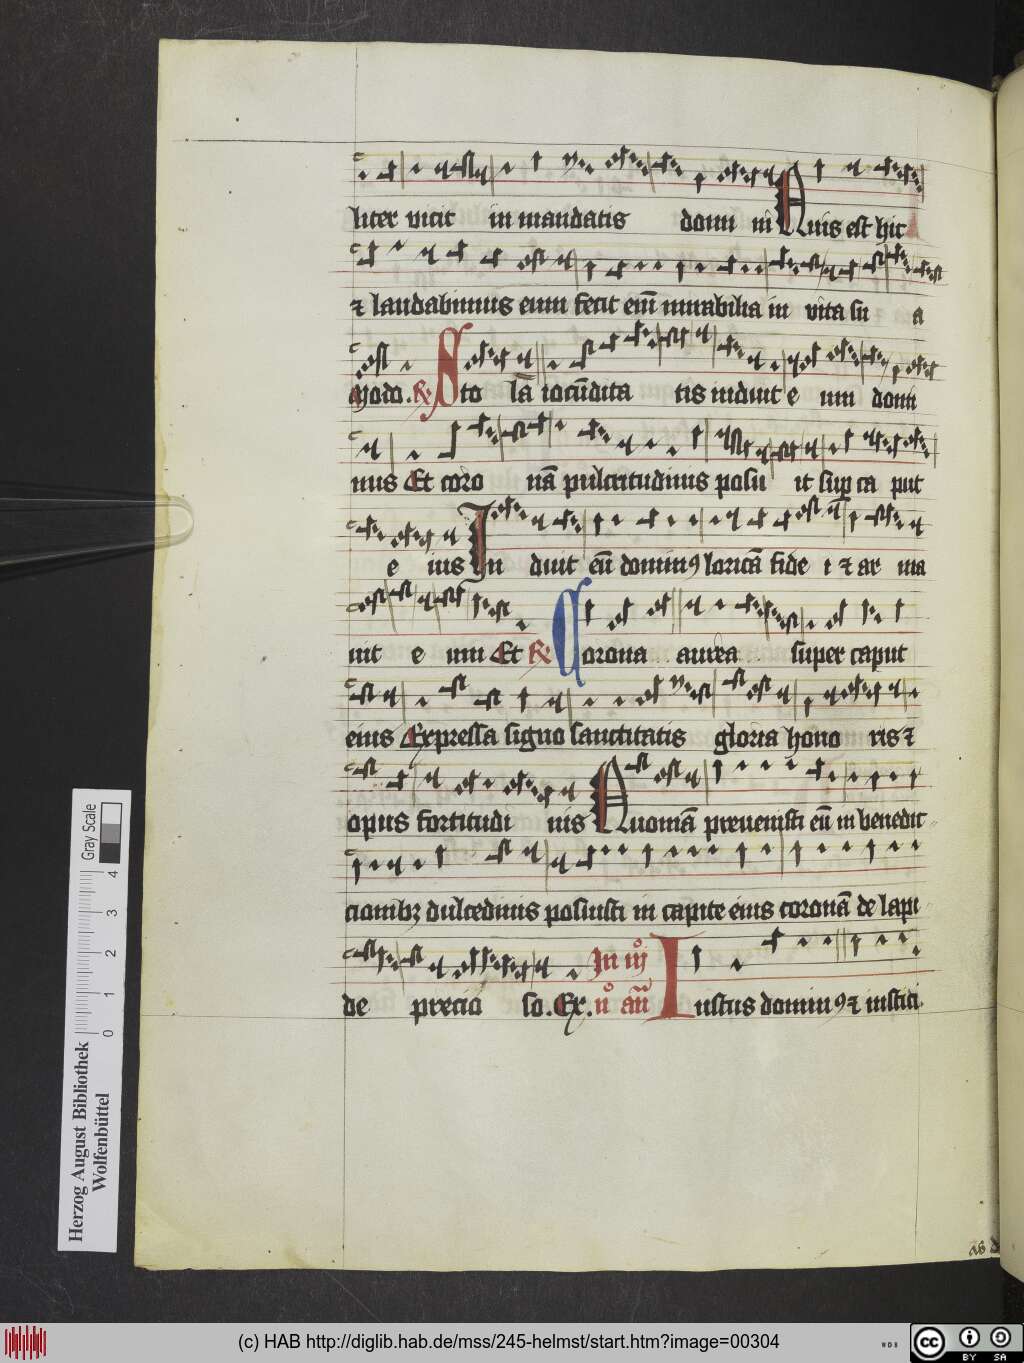 liter vicit in mandatis domi ni Quis est hic
⁊ laudabimus eum fecit eni᷒ mirabilia in vita su a
Modo. ℟ Sto lā iocūdita tis induit e um domi
nus Et coro nā pulcritudinis posu it sup ca put
e ius In duit eū dominꝰ loricā fide i ⁊ ar ma
uit e um Et ℟ Corona aurea super caput
eius Expressa signo sanctitatis gloria hono ris ⁊
opus fortitudi nis Quoniā preuenisti eū in benedic
cionibꝫ dulcedinis posuisti in capite eius coronā de lapi
In iij
de precio so. Ex. ii añ Iustus dominꝰ ⁊ iustici
Herzog August Bibliothek
Wolfenbüttel
Gray Scale
0 1 2 3 4
(c) HAB http://diglib.hab.de/mss/245-helmst/start.htm?image=00304
WDB
cc BY SA